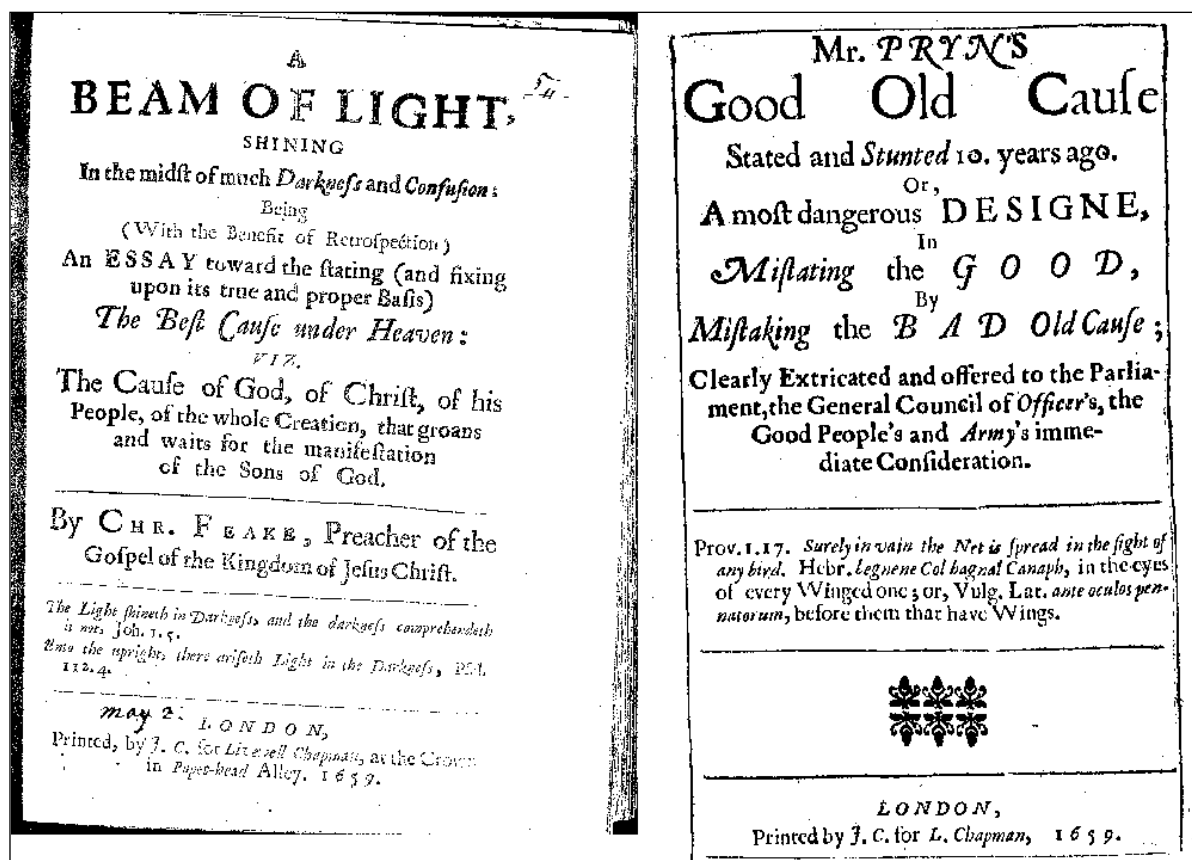 A
BEAM OF LIGHT,
SHINING
In the midſt of much Darkneſs and Confuſion:
Being
(With the Benefit of Retroſpection)
An ESSAY toward the ſtating (and fixing
upon its true and proper Baſis)
The Beſt Cauſe under Heaven:
VIZ.
The Cauſe of God, of Chriſt, of his
People, of the whole Creation, that groans
and waits for the manifeſtation
of the Sons of God.
By CHR. FEAKE, Preacher of the
Goſpel of the Kingdom of Jeſus Chriſt.
The Light ſhineth in Darkneſs, and the darkneſs comprehendeth
it not, Joh. 1.5.
Unto the upright, there ariſeth Light in the Darkneſs, Pſal.
112.4.
may 2.
LONDON,
Printed, by J. C. for Livewell Chapman, at the Crown
in Popes-head Alley. 1659.
Mr. PRYN'S
Good Old Cauſe
Stated and Stunted 10. years ago.
Or,
A moſt dangerous DESIGNE,
In
Miſtating the GOOD,
By
Miſtaking the BAD Old Cauſe;
Clearly Extricated and offered to the Parlia-
ment, the General Council of Officer's, the
Good People's and Army's imme-
diate Conſideration.
Prov. 1.17. Surely in vain the Net is ſpread in the ſight of
any bird. Hebr. legnene Col bagnal Canaph, in the eyes
of every Winged one; or, Vulg. Lat. ante oculos pen-
natorum, before them that have Wings.
LONDON,
Printed by J. C. for L. Chapman, 1659.